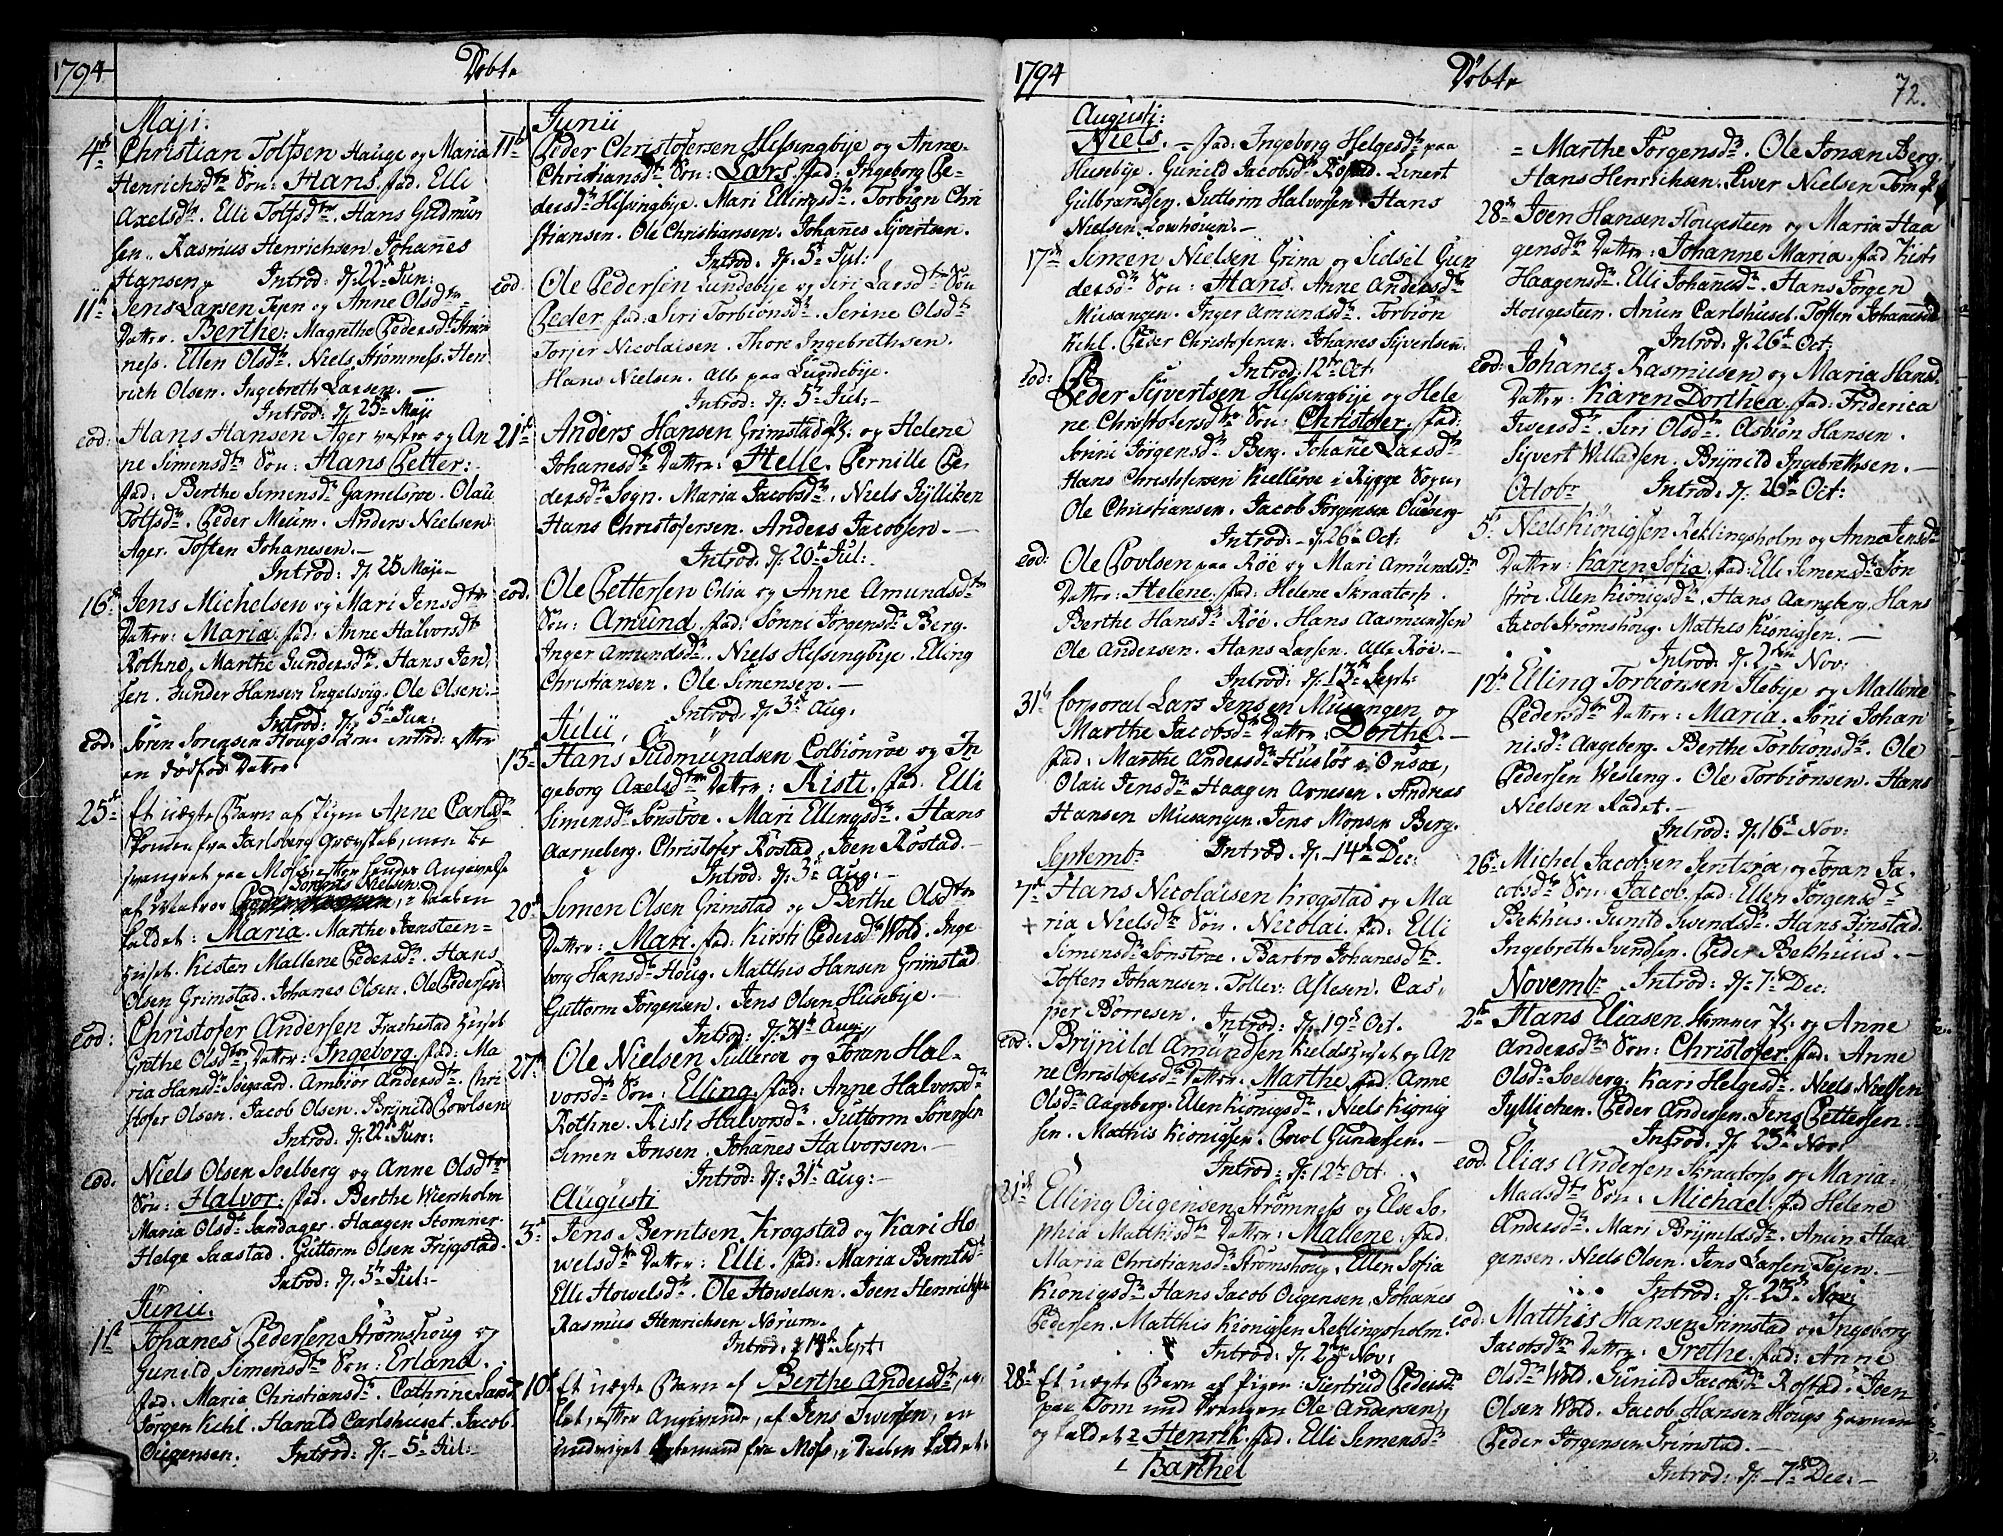 1794
Döbte
Maji:
4de Christian Tolfsen Hauge og Maria
Henrichsdtr Sön: Hans. fad. Elli
Axelsdtr. Elli Tolfsdtr. Hans Gudmun
sen. Rasmus Henrichsen Johanes
Hansen. Introd: d: 22de Jun:
11te Jens Larsen Tejen og Anne Olsdtr
Datter: Berthe: Magrethe Pedersdtr Ström
ness. Ellen Olsdtr. Niels Strömness. Hen
rich Olsen. Ingebreth Larsen. —
Introd: d: 25de Maji
eod: Hans Hansen Ager vestre og An
ne Simensdtr Sön: Hans Petter:
fad: Berthe Simensdtr Gamelsroe. Olau
Tolfsdtr. Peder Meum. Anders Nielsen
Ager. Tosten Johanesen. —
Introd: d: 25 Maji —
16de Jens Michelsen og Mari Jensdtr
Datter: Maria. fad: Anne Halvorsdtr
Rothne, Marthe Gundersdtr. Hans Jen
sen. Gunder Hansen Engelsvig. Ole Olsen. —
Introd: d: 5te Jun:
eod: Sören Sörensen Hougs Kone introd: efter
en dödfod: Datter.
25de Et uægte Barn af Pigen Anne Carlsdtr
komen fra Jarlsberg Grevskab, men be
svangret paa Moss, efter hendes Angivelse
af Matros Torberts Nielsen, i Daaben
kaldet: Maria. Marthe Steensteen
huset. Kisten Mallene Pedersdtr. Hans
Olsen Grimstad. Johanes Olsen. Ole Pedersen
eod: Christofer Andersen Trachestad huset
Grethe Olsdtr Datter: Ingeborg. fad: Ma
ria Hansdtr Soegaard. Ambior Andersdtr. Chri
stofer Olsen. Jacob Olsen. Brynild Powlsen
Introd: d: 22de Jun:
eod. Niels Olsen Soelberg og Anne Olsdtr
Sön: Halvor. fad. Berthe Wiersholm
Maria Olsdtr Sandager. Haagen Stomner
Helge Saastad. Guttorm Olsen Frygstad.
Introd: d: 5te Jul: —
Junii.
1ste Johanes Pedersen Strömshoug og
Gunild Simensdtr Sön: Erland.
fad: Maria Christiansdtr. Cathrine Larsdtr
Jörgen Kihl. Harald Carlshuset. Jacob
Ougensen. Introd: d: 5te Jul: —
Junii
11te Peder Christofersen Hessingbye og Anne
Christiansdtr Sön: Lars. fad: Ingeborg Pe
dersdtr Hessingbye. Mari Ellingsdtr. Torbiön Chri
stiansen. Ole Christiansen. Johanes Syvertsen.
Introd. d: 5te Jul: —
eod. Ole Pedersen Lundebye og Siri Larsdtr Sön
Peder. fad: Siri Torbiönsdtr. Serine Olsdtr
Torjer Nicolaisen. Thore Ingebrethsen.
Hans Nielsen. alle paa Lundebye.
Introd: d: 5te Jul: —
21de Anders Hansen Grimstad og Helene
Johanesdtr Datter: Helle. Pernille Pe
dersdtr Sogn. Maria Jacobsdtr, Niels Gylliken
Hans Christofersen. Anders Jacobsen. —
Introd: d: 20de Jul: —
eod. Ole Pettersen Örlia og Anne Amundsdtr
Sön: Amund. fad: Sönni Jörgensdtr Berg.
Inger Amundsdtr. Niels Hessingbye. Elling
Christiansen. Ole Simensen. —
Introd: d: 3de Aug:
Julii
13de Hans Gudmundsen Colbiönroe og In
geborg Axelsdtr Datter: Kisti. fad. Elli
Simensdtr Sonstroe. Mari Ellingsdtr. Hans
Aarneberg. Christofer Röstad, Joen Röstad. —
Introd: d: 3de Aug: —
20de Simen Olsen Grimstad og Berthe Olsdtr
Datter: Mari. fad: Kirsti Pedersdtr Wold. Inge
borg Hansdtr Houg. Matthis Hansen Grimstad
Guttorm Jörgensen. Jens Olsen Husebye. —
Introd: d: 31te Aug:
27de Ole Nielsen Sulleroe og Joran Hal-
vorsdtr Sön: Elling. fad: Anne Halvorsdtr
Rothne. Kisti Halvorsdtr. Guttorm Sörensen
Simen Jonsen. Johanes Halvorsen. —
Introd: d: 31te Aug: —
Augusti
3de Jens Berntsen Krogstad og Kari Ho
welsdtr Datter: Elli. fad: Maria Berntsdtr
Elli Howelsdtr. Ole Howelsen. Joen Henrichsen
Rasmus Henrichsen Norum.
Introd: d: 14de Sept:
10de Et uægte Barn af Berthe Andersdtr, av
let, efter Angivende, af Jens Iwersen, en
undviget Købmand fra Moss, i Daaben kaldet:
1794
Döbte
72.
Augusti:
Niels. — fad: Ingeborg Helgesdtr paa
Husebye. Gunild Jacobsdtr Röstad. Linert
Gulbrandsen. Guttorm Halvorsen. Hans
Nielsen Löwhöven. —
17de Simen Nielsen Grina og Sidsel Gun
dersdtr Sön: Hans. Anne Andersdtr
Musangen. Inger Amundsdtr. Torbiön
Kihl. Peder Christofersen. Johanes Syvertsen.
Introd: 12te Oct
eod: Peder Syvertsen Hessingbye og Hele
ne Christofersdtr Sön: Christofer. fad:
Sönni Jörgensdtr Berg. Johane Larsdtr
Hans Christofersen Kielleroe i Rygge Sogn,
Ole Christiansen. Jacob Jörgensen Oudberg
Introd: d: 26de Oct:
eod: Ole Povlsen paa Röe og Mari Amundsdtr
Datter: Helene. fad: Helene Skraatorp.
Berthe Hansdtr Röe. Hans Aasmundsen
Ole Andersen. Hans Larsen. Alle Röe. —
Introd: d: 13de Sept:
31te Corporal Lars Jensen Musangen og
Marthe Jacobsdtr Datter: Dorthe. —
fad: Marthe Andersdtr Huslös i Onsöe,
Olau Jensdtr. Haagen Arnesen. Andreas
Hansen Musangen. Jens Monsen Berg.
Septembr Introd. d. 14de Dec:
7de Hans Nicolaisen Krogstad og Ma
ria Nielsdtr Sön. Nicolai. fad: Elli
Simensdtr Sonstroe. Barbro Johanesdtr.
Tosten Johanesen. Tollev Aslesen. Cas
per Börresen. Introd: d: 19de Oct.
eod. Brynild Amundsen Kieldshuset og An
ne Christofersdtr Datter: Marthe. fad: Anne
Olsdtr Aageberg. Ellen Kionigsdtr. Niels Kionig
sen. Matthis Kionigsen. Powl Gundersen. —
Introd: d: 12te Oct.
21de Elling Ougensen Strömness og Else So
phia Matthisdtr Datter: Mallene. fad:
Maria Christiansdtr Strömshoug. Ellen Sofia
Kionigsdtr. Hans Jacob Ougensen, Johanes
Pedersen. Matthis Kionigsen Reklingsholm.
Introd: d: 2den Nov:
28de Et uægte Barn af Pigen: Giertrud Pedersdtr
paa Tom med Drengen Ole Andersen,
og kaldet 2 Henrik. fad. Elli Simensdtr
1 Barthel
= Marthe Jörgensdtr. Ole Jonæn Berg.
Hans Henrichsen. Iwer Nielsen Tom
28de Joen Hansen Hougesteen og Maria Haa
gensdtr Datter: Johanne Maria. fad Kisti
Haagensdtr. Elli Johanesdtr. Hans Jörgen
Hougesteen. Anun Carlshuset. Tosten Johanesen
Introd: d: 26de Oct:
eod: Johanes Rasmusen og Maria Hansdtr
Datter: Karen Dorthea. fad: Friderica
Iwersdtr. Siri Olsdtr. Asbiön Hansen.
Syvert Willadsen. Brynild Ingebrethsen. —
Octobr Introd: d: 26de Oct:
5te Niels Kionigsen Reklingsholm og Anne Jensdtr
Datter: Karen Sofia. fad: Elli Simensdtr Son
stroe. Ellen Kionigsdtr. Hans Aarneberg. Hans
Jacob Strömshoug. Mathis Kionigsen. —
Introd: d. 2den Nov:
12te Elling Torbiönsen Ilebye og Mallene
Pedersdtr Datter: Maria. Söni Johan
nisdtr Aageberg. Berthe Torbiönsdtr. Ole
Pedersen Westeng. Ole Torbiönsen. Hans
Nielsen Rådet. —
Introd: d: 16de Nov:
26de Michel Jacobsen Jensteröe, og Joran Ja
cobsdtr Sön: Jacob. fad: Ellen Jörgensdtr
Bekhus. Gunild Svendsdtr. Hans Finstad.
Ingebreth Svendsen. Peder Bekhuus. —
Novembr Introd: d: 7de Dec:
2den Hans Eliasen Stomner og Anne
Andersdtr Sön: Christofer. fad: Anne
Olsdtr Soelberg. Kari Helgesdtr. Niels Nielsen
Gyllichen. Peder Andersen. Jens Pettersen: —
Introd: d. 23de Nov:
eod. Elias Andersen Skraatorp og Maria
Madsdtr Sön: Michael: fad Helene
Andersdtr. Mari Brynildsdtr. Anun Haa
gensen. Niels Olsen. Jens Larsen Tejen. —
Introd: d: 23de Nov:
eod: Matthis Hansen Grimstad og Ingeborg
Jacobsdtr Datter: Grethe. fad: Anne
Olsdtr Wold. Gunild Jacobsdtr Röstad. Joen
Olsen Wold. Jacob Hansen Hougs
Peder Jörgensen Grimstad. —
Introd: d: 7de Dec: —